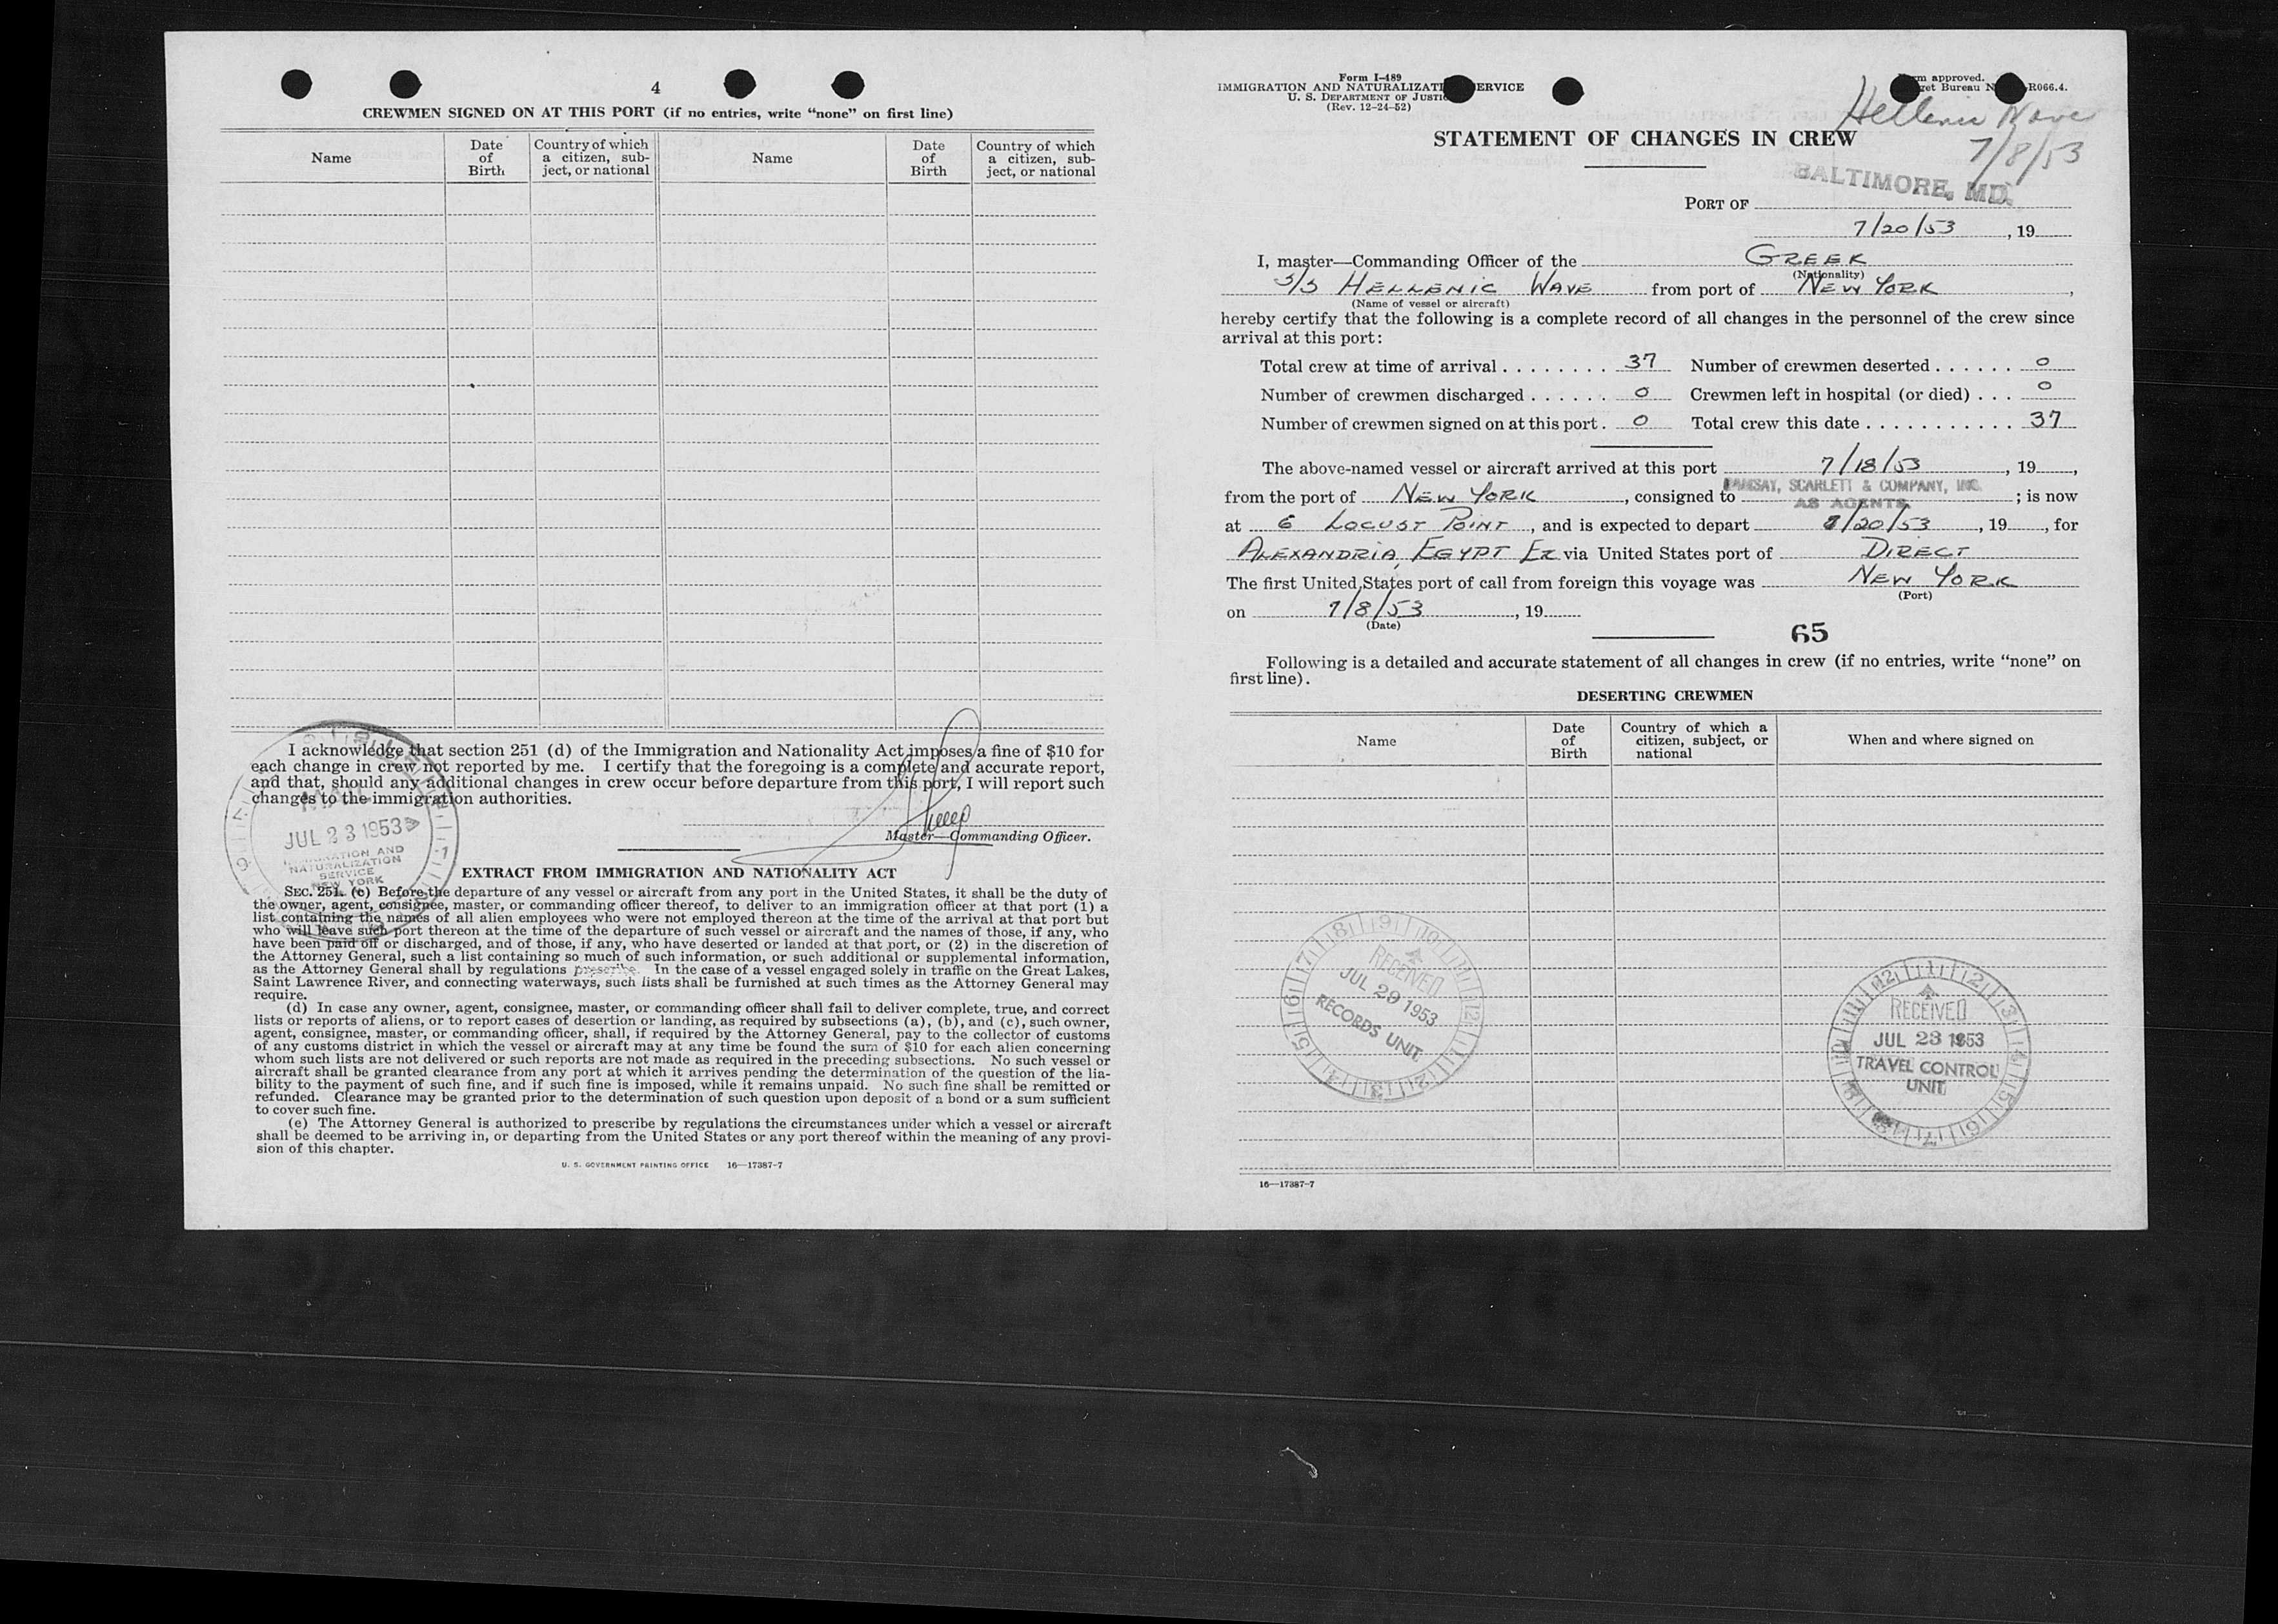 4
CREWMEN SIGNED ON AT THIS PORT (if no entries, write “none” on first line)
Name
Date of Birth
Country of which a citizen, subject, or national
Name
Date of Birth
Country of which a citizen, subject, or national
I acknowledge that section 251 (d) of the Immigration and Nationality Act imposes a fine of $10 for
each change in crew not reported by me. I certify that the foregoing is a complete and accurate report,
and that, should any additional changes in crew occur before departure from this port, I will report such
changes to the immigration authorities.
Master—Commanding Officer.
MAIL
JUL 23 1953
IMMIGRATION AND
NATURALIZATION
SERVICE
NEW YORK
EXTRACT FROM IMMIGRATION AND NATIONALITY ACT
SEC. 251. (c) Before the departure of any vessel or aircraft from any port in the United States, it shall be the duty of
the owner, agent, consignee, master, or commanding officer thereof, to deliver to an immigration officer at that port (1) a
list containing the names of all alien employees who were not employed thereon at the time of the arrival at that port but
who will leave such port thereon at the time of the departure of such vessel or aircraft and the names of those, if any, who
have been paid off or discharged, and of those, if any, who have deserted or landed at that port, or (2) in the discretion of
the Attorney General, such a list containing so much of such information, or such additional or supplemental information,
as the Attorney General shall by regulations prescribe. In the case of a vessel engaged solely in traffic on the Great Lakes,
Saint Lawrence River, and connecting waterways, such lists shall be furnished at such times as the Attorney General may
require.
(d) In case any owner, agent, consignee, master, or commanding officer shall fail to deliver complete, true, and correct
lists or reports of aliens, or to report cases of desertion or landing, as required by subsections (a), (b), and (c), such owner,
agent, consignee, master, or commanding officer, shall, if required by the Attorney General, pay to the collector of customs
of any customs district in which the vessel or aircraft may at any time be found the sum of $10 for each alien concerning
whom such lists are not delivered or such reports are not made as required in the preceding subsections. No such vessel or
aircraft shall be granted clearance from any port at which it arrives pending the determination of the question of the lia-
bility to the payment of such fine, and if such fine is imposed, while it remains unpaid. No such fine shall be remitted or
refunded. Clearance may be granted prior to the determination of such question upon deposit of a bond or a sum sufficient
to cover such fine.
(e) The Attorney General is authorized to prescribe by regulations the circumstances under which a vessel or aircraft
shall be deemed to be arriving in, or departing from the United States or any port thereof within the meaning of any provi-
sion of this chapter.
U. S. GOVERNMENT PRINTING OFFICE 16—17387-7
Form I-489
IMMIGRATION AND NATURALIZATI ERVICE
U. S. DEPARTMENT OF JUSTIC
(Rev. 12-24-52)
m approved.
get Bureau N R066.4.
Hellenic Wave
7/8/53
STATEMENT OF CHANGES IN CREW
BALTIMORE, MD.
PORT OF
7/20/53, 19
I, master—Commanding Officer of the GREEK
(Nationality)
S/S HELLENIC WAVE from port of NEW YORK,
(Name of vessel or aircraft)
hereby certify that the following is a complete record of all changes in the personnel of the crew since
arrival at this port:
Total crew at time of arrival . . . . . . . . 37 Number of crewmen deserted . . . . . . 0
Number of crewmen discharged . . . . . . 0 Crewmen left in hospital (or died) . . . 0
Number of crewmen signed on at this port . 0 Total crew this date . . . . . . . . . . . 37
The above-named vessel or aircraft arrived at this port 7/18/53, 19,
RAMSAY, SCARLETT & COMPANY, INC.
from the port of NEW YORK, consigned to ; is now
AS AGENTS
at 6 LOCUST POINT, and is expected to depart 7/20/53, 19, for
ALEXANDRIA, EGYPT via United States port of DIRECT
The first United States port of call from foreign this voyage was NEW YORK
(Port)
on 7/8/53, 19
(Date)
65
Following is a detailed and accurate statement of all changes in crew (if no entries, write “none” on
first line).
DESERTING CREWMEN
Name
Date of Birth
Country of which a citizen, subject, or national
When and where signed on
RECEIVED
JUL 29 1953
RECORDS UNIT
RECEIVED
JUL 23 1953
TRAVEL CONTROL
UNIT
16—17387-7